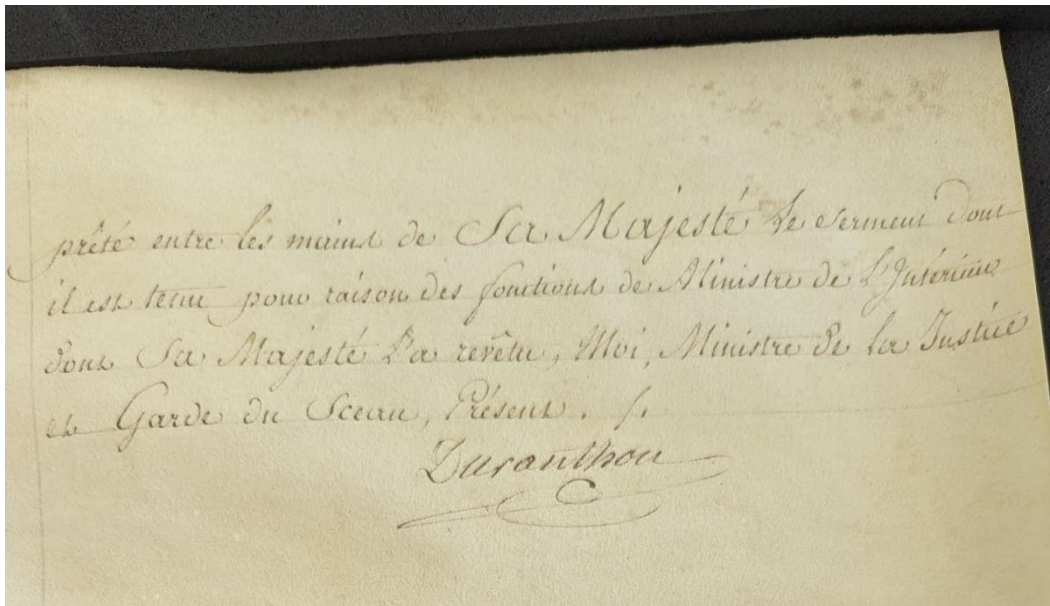 prêté entre les mains de Sa Majesté le serment dont
il est tenu pour raison des fonctions de Ministre de l'Intérieur
dont Sa Majesté l'a revêtu, Moi, Ministre de la Justice
et Garde du Sceau, Présent. /.
Duranthon